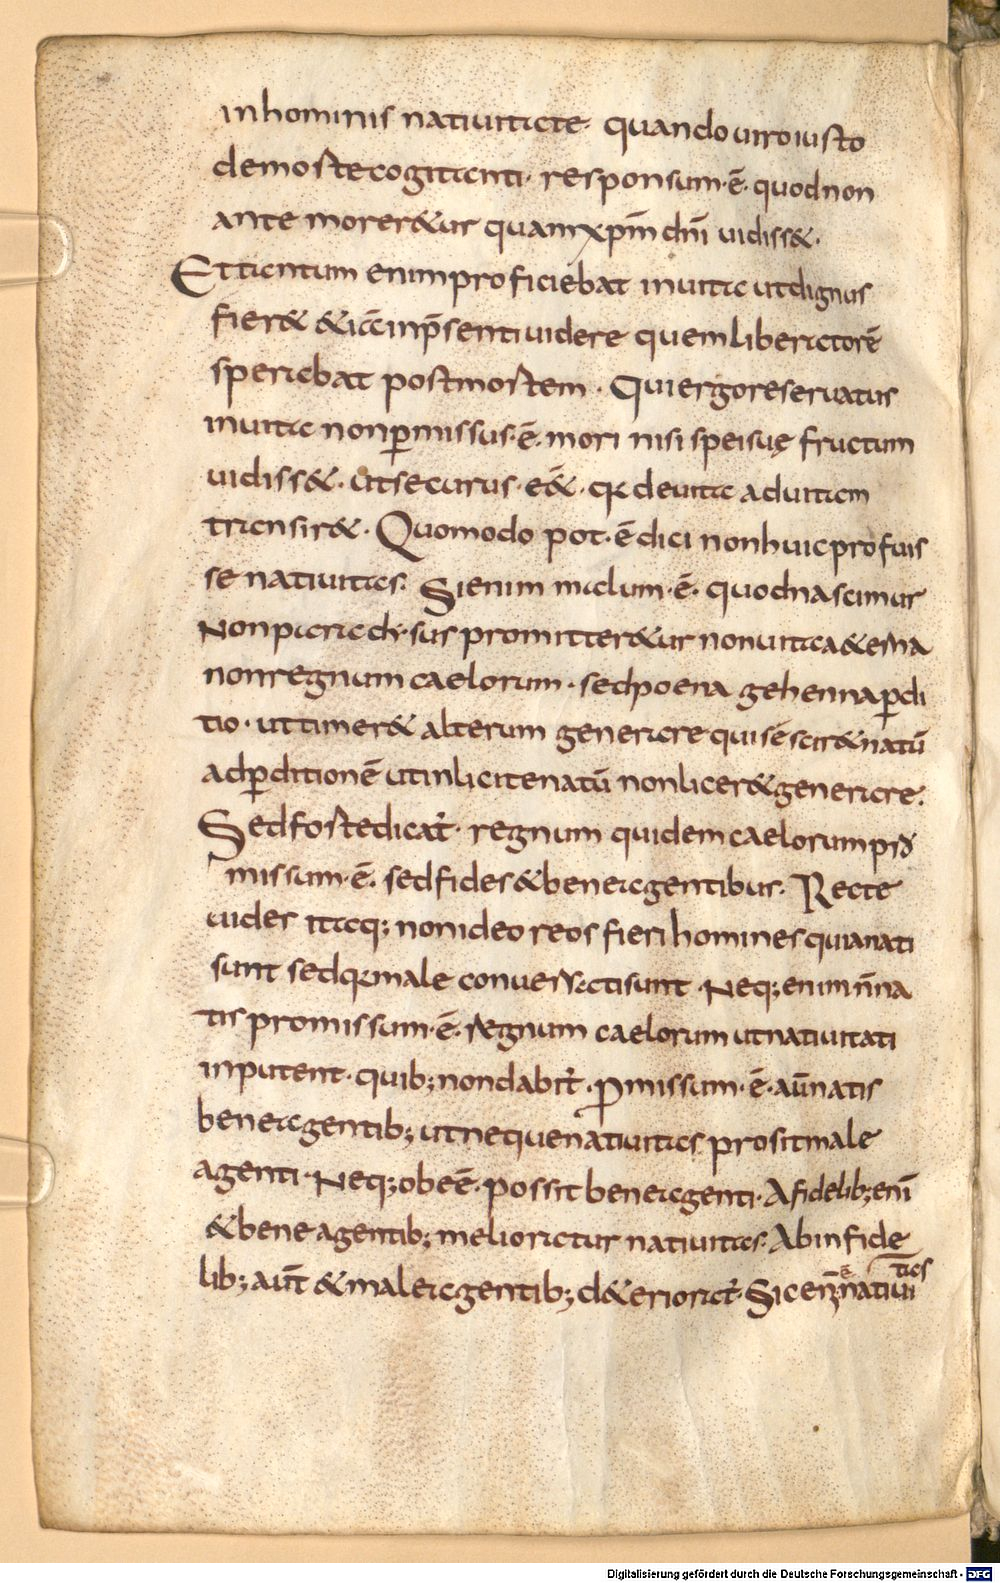 inhominis natiuitate· quando uiroiusto
demorte cogitanti· responsum·ē· quodnon
ante morer&ur quam xp̄m dn̄m uidiss&·
Ettantum enim proficiebat inuita utdignus
fier& &iā inp̄senti uidere quem liberatorē
sperabat postmortem· Qui ergo reseruatus
inuita nonꝑmissus·ē· mori nisi speisuę fructum
uidiss&· ut securus·eēt& deuita aduitam
transir&· Quomodo pot·ē dici nonhuic profuis
se natiuitas· Sienim malum·ē· quodnascimur
Non paradi·sus promitter&ur nonuita&erna
nonregnum caelorum· sedpoena gehenna ꝑdi
tio· ut timer& alterum generare quisē scir&natū
adꝑditionē utinlicite natū nonlicer&generare·
Sedfortedicat̄· regnum quidem caelorum pro
missum·ē· sedfides&bene agentibus· Recte
uides itaq; non ideo reos fieri homines quianati
sunt sed male conuersatisunt· Neq; enim n̄na
tis promissum·ē· regnum caelorum utnatiuitati
inputent· quib; nondabit̄· ꝓmissum·ē· aūnatis
bene agentib; utnequenatiuitas prositmale
agenti· Neq; obeē· possit bene agenti· Afidelib; enī
&bene agentib; melioratur natiuitas· Abinfide
lib; aūt &male agentib; d&eriorat̄· Sicen̄ natiui
tas
Digitalisierung gefördert durch die Deutsche Forschungsgemeinschaft - DFG